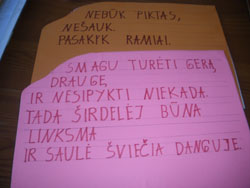 NEBŪK PIKTAS,
NEŠAUK.
PASAKYK RAMIAI.
SMAGU TURĖTI GERĄ
DRAUGĘ
IR NESIPYKTI NIEKADA.
TADA ŠIRDELĖJ BŪNA
LINKSMA
IR SAULĖ ŠVIEČIA DANGUJE.